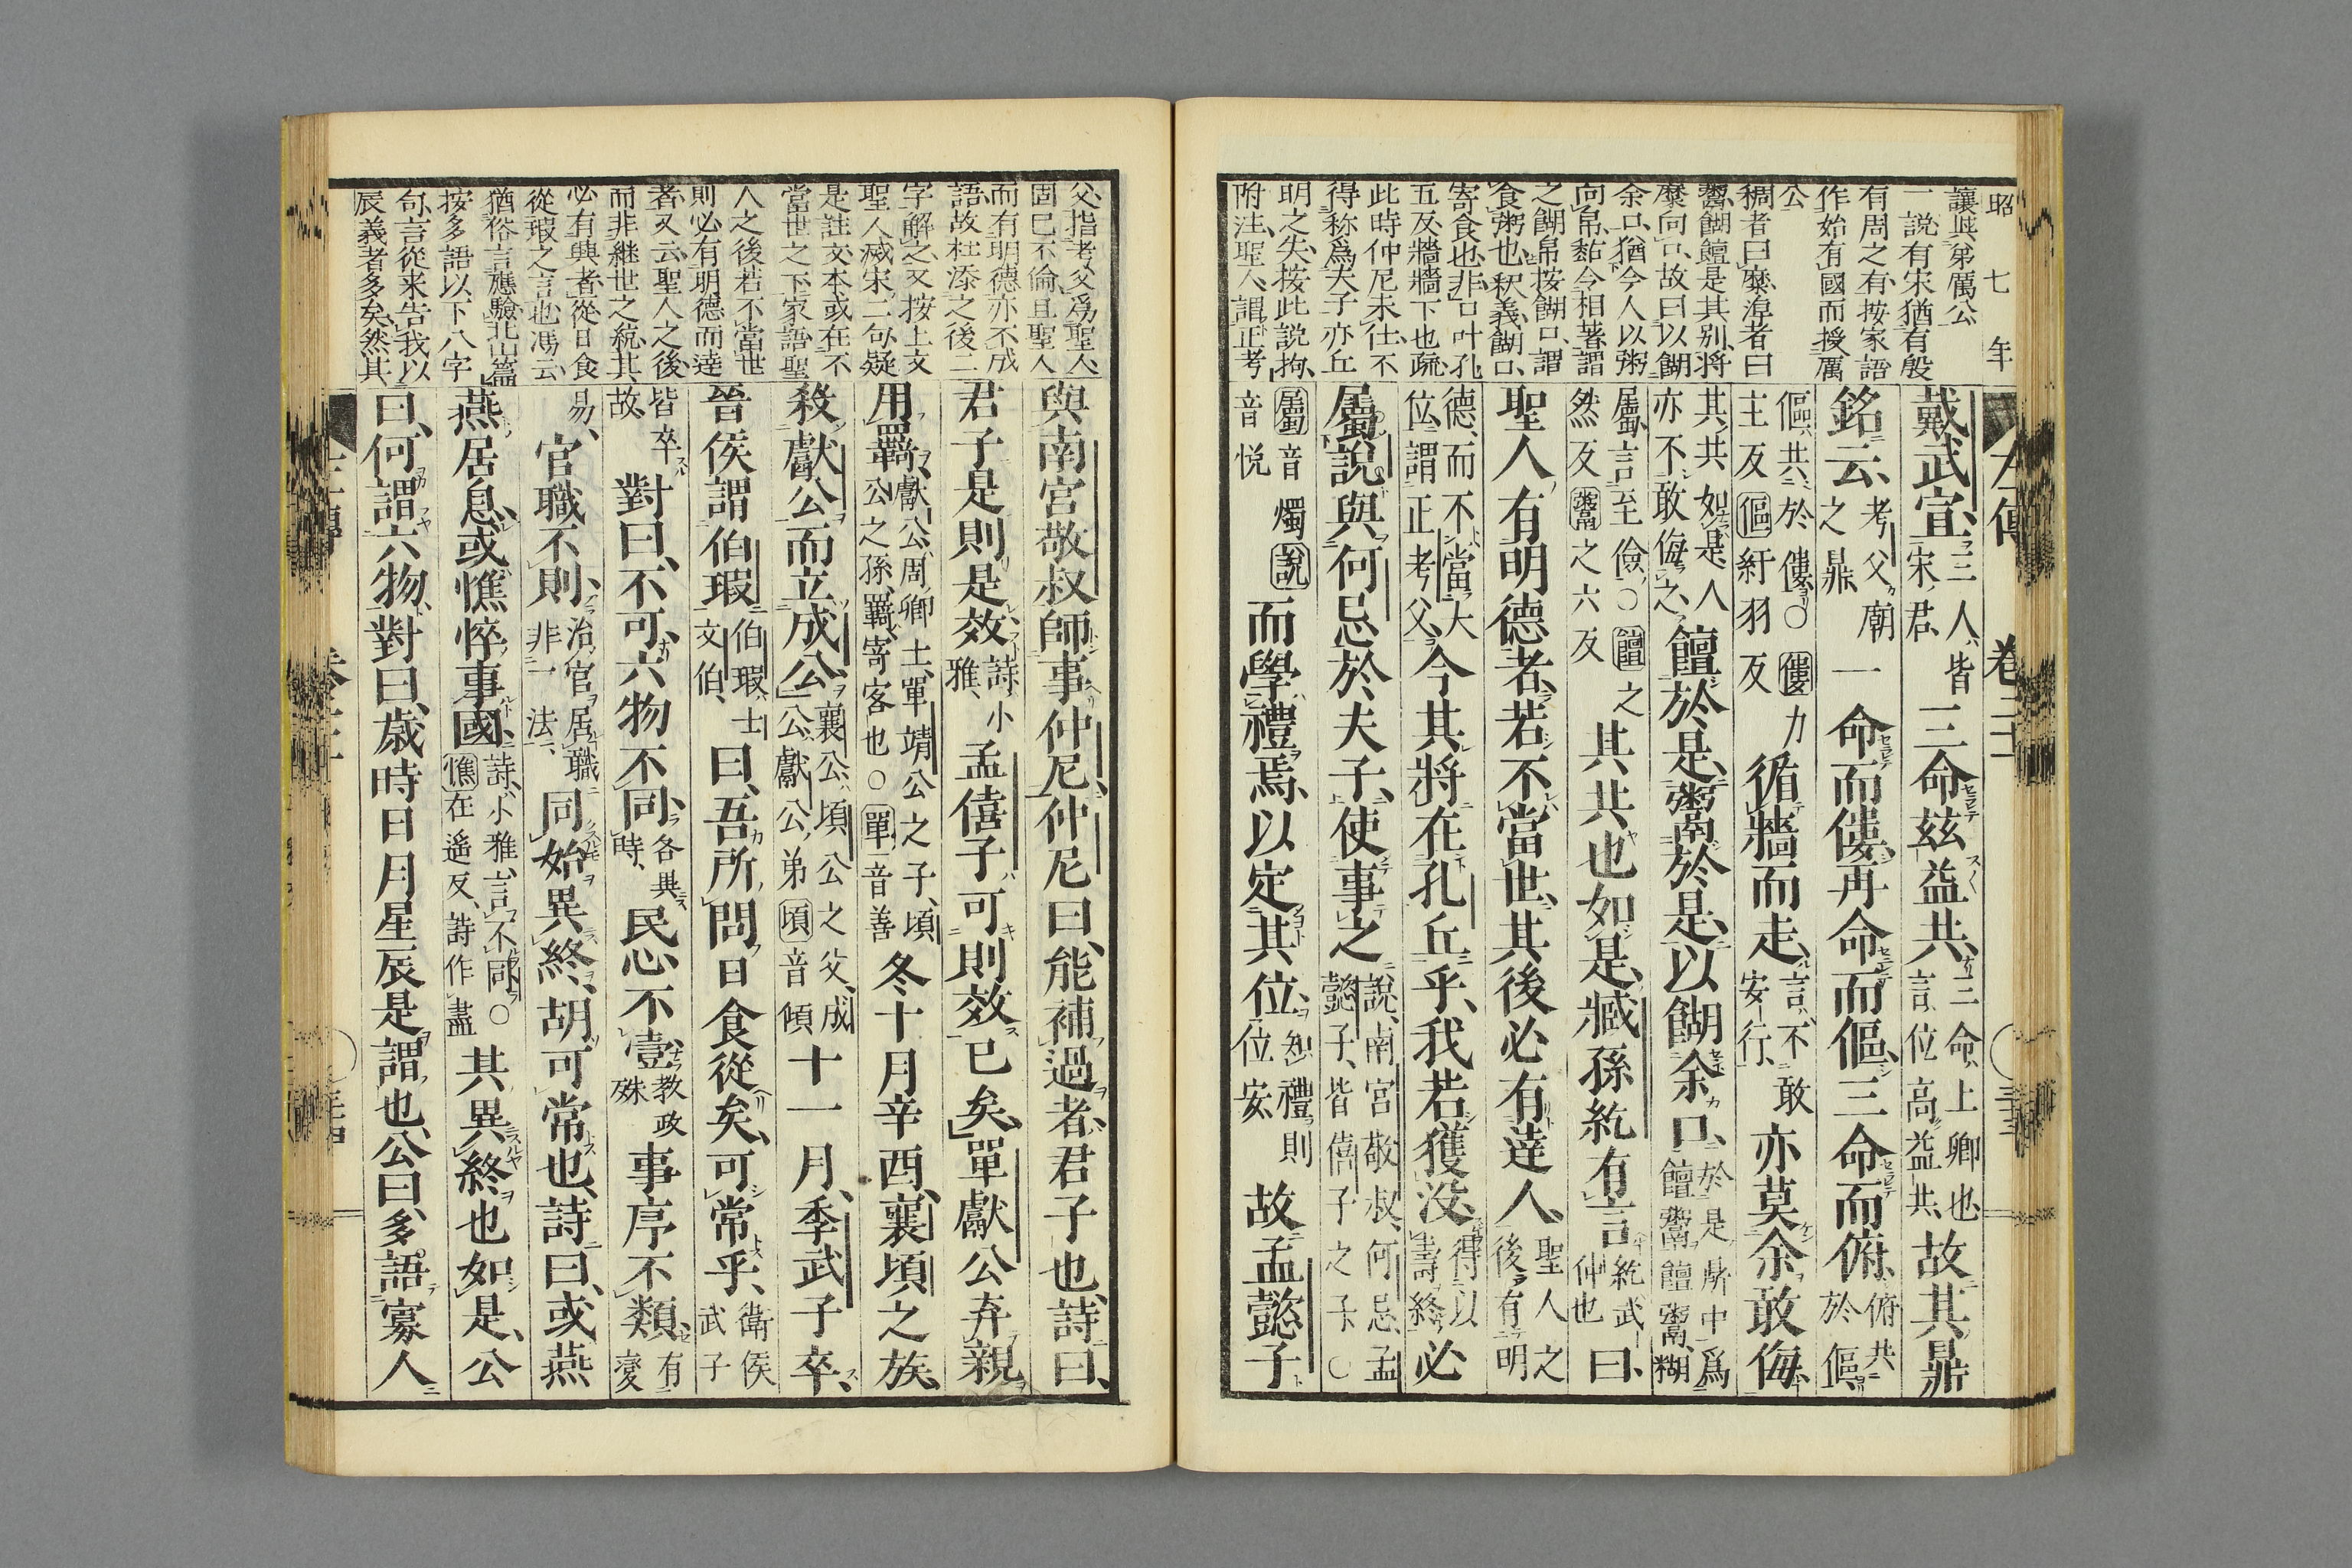 昭七年
讓與弟厲公
一說有宋猶有殷
有周之有按家語
作始有國而授厲
公
稠者曰糜淖者曰
鬻餬饘是其別將
糜向口故曰以餬
余口猶今人以粥
向帛黏今相著謂
之餬帛按餬口謂
食粥也釈義餬口
寄食也非口叶孔
五反牆牆下也疏
此時仲尼未仕不
得称爲夫子亦丘
明之失按此説拘
附注聖人謂正考
左傳 卷二十一
戴武宣三人皆宋君三命茲益共三命上卿也言位高益共故其鼎
銘云考父廟之鼎一命而僂再命而傴三命而俯俯共於傴
傴共於僂○僂力主反傴紆羽反循牆而走言不敢安行亦莫余敢侮
其共如是人亦不敢侮之饘於是鬻於是以餬余口於是鼎中爲饘鬻饘鬻餬
屬言至儉○饘之然反鬻之六反其共也如是臧孫紇有言紇武仲也曰
聖人有明德者若不當世其後必有達人聖人之後有明
德而不當大位謂正考父今其將在孔丘乎我若獲没得以壽終必
屬說與何忌於夫子使事之說南宮敬叔何忌孟懿子皆僖子之子○
屬音燭說音悦而學禮焉以定其位知禮則位安故孟懿子
父指考父爲聖人
固已不倫且聖人
而有明德亦不成
語故杜添之後二
字解之又按上文
聖人滅宋二句疑
是註文本或在不
當世之下家語聖
人之後若不當世
則必有明德而達
者又云聖人之後
而非継世之統其
必有興者從日食
從瑕之言也馮云
猶俗言應驗北山篇
按多語以下八字
句言從来告我以
辰義者多矣然其
與南宮敬叔師事仲尼仲尼曰能補過者君子也詩曰
君子是則是效詩小雅孟僖子可則效已矣單獻公弃親
用羇獻公周卿士單靖公之子頃公之孫羇寄客也○單音善冬十月辛酉襄頃之族
殺獻公而立成公襄公頃公之父成公獻公弟頃音傾十一月季武子卒
晉侯謂伯瑕伯瑕士文伯曰吾所問日食從矣可常乎衛侯武子
皆卒故對曰不可六物不同各異時民心不壹政教殊事序不類有變
易官職不則治官居職非一法同始異終胡可常也詩曰或燕
燕居息或憔悴事國詩小雅言不同○憔在遙反詩作盡其異終也如是公
曰何謂六物對曰歳時日月星辰是謂也公曰多語寡人